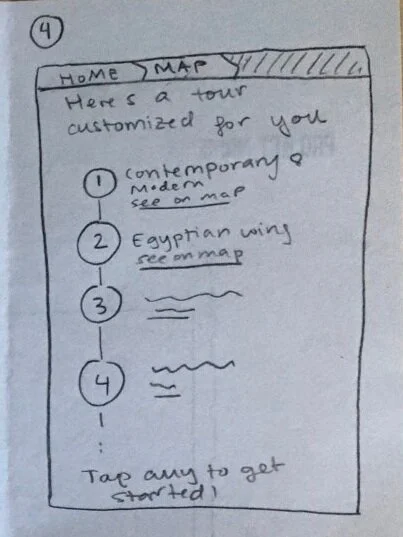 4
HOME MAP
Here's a tour
customized for you
1 Contemporary &
Modern
see on map
2 Egyptian wing
see on map
3
4
Tap any to get
started!